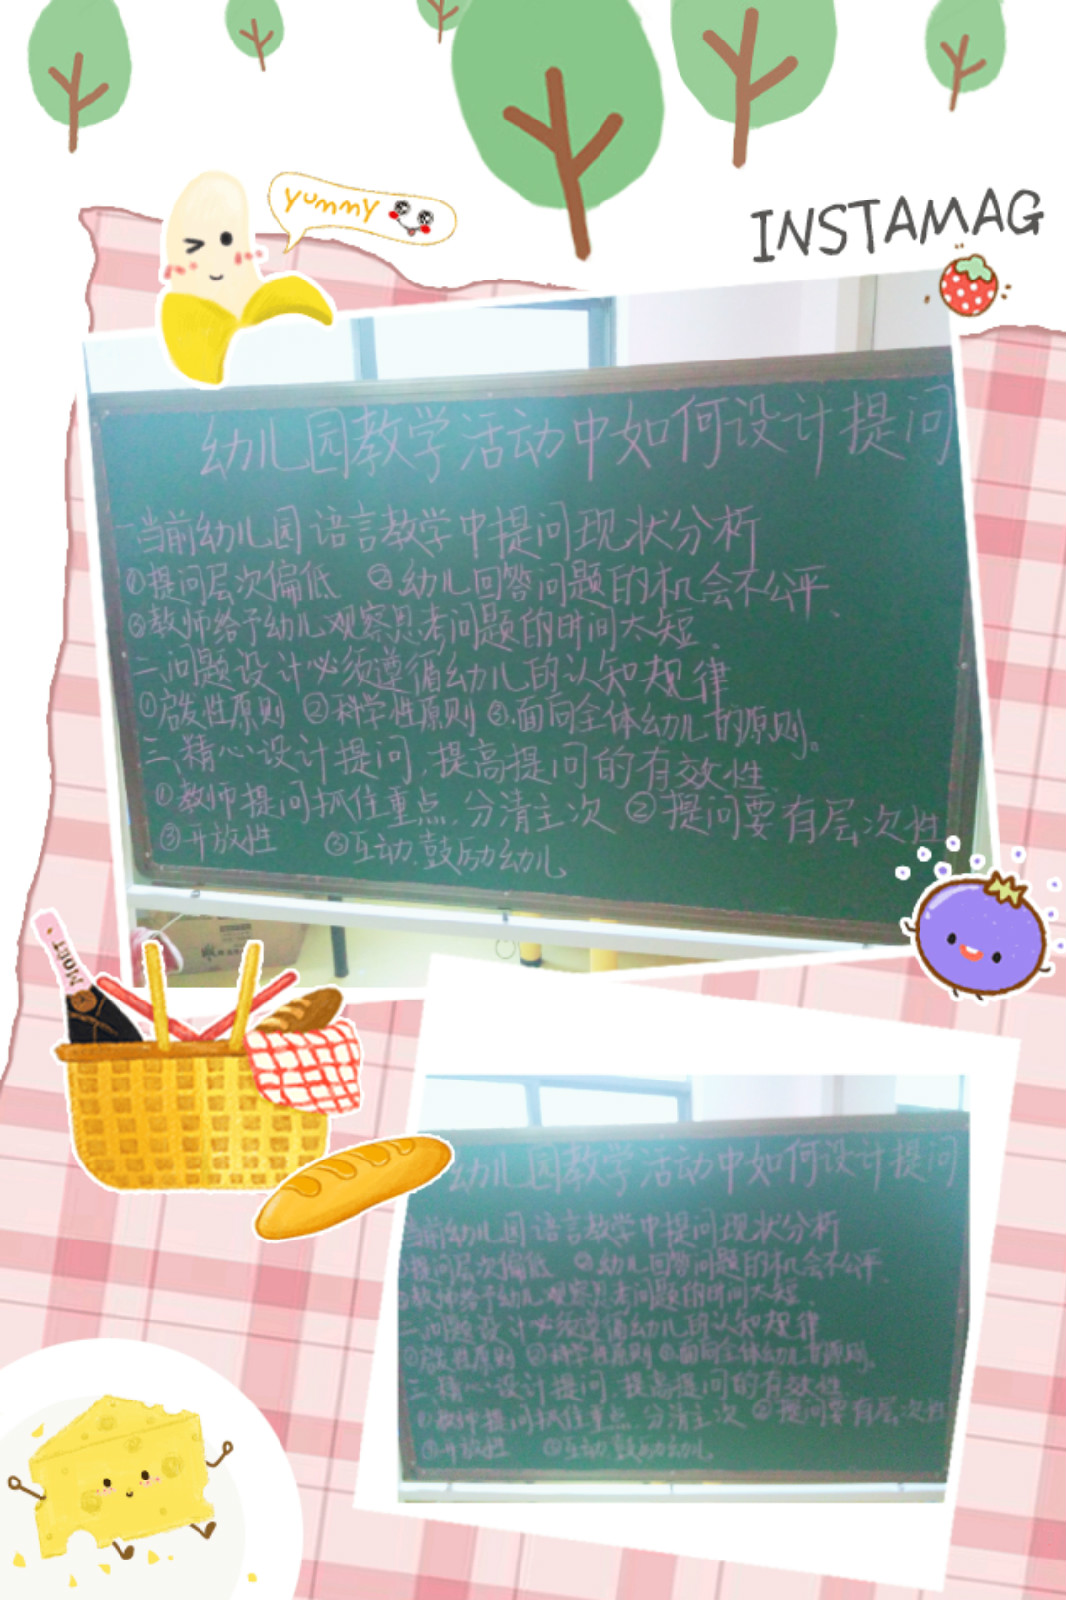 yummy
INSTAMAG
幼儿园教学活动中如何设计提问
一当前幼儿园语言教学中提问现状分析
①提问层次偏低 ②幼儿回答问题的机会不公平、
③教师给予幼儿观察思考问题的时间太短、
二、问题设计必须遵循幼儿的认知规律
①启发性原则 ②科学性原则 ③.面向全体幼儿的原则。
三、精心设计提问,提高提问的有效性
①教师提问抓住重点,分清主次 ②提问要有层次性
③开放性 ③互动、鼓励幼儿、
MOET
幼儿园教学活动中如何设计提问
当前幼儿园语言教学中提问现状分析
提问层次偏低 ②幼儿回答问题的机会不公平、
教师给予幼儿观察思考问题的时间太短、
二、问题设计必须遵循幼儿的认知规律
①启发性原则 ②科学性原则 ③面向全体幼儿的原则。
三、精心设计提问,提高提问的有效性
①教师提问抓住重点,分清主次 ②提问要有层次性
③开放性 ③互动、鼓励幼儿